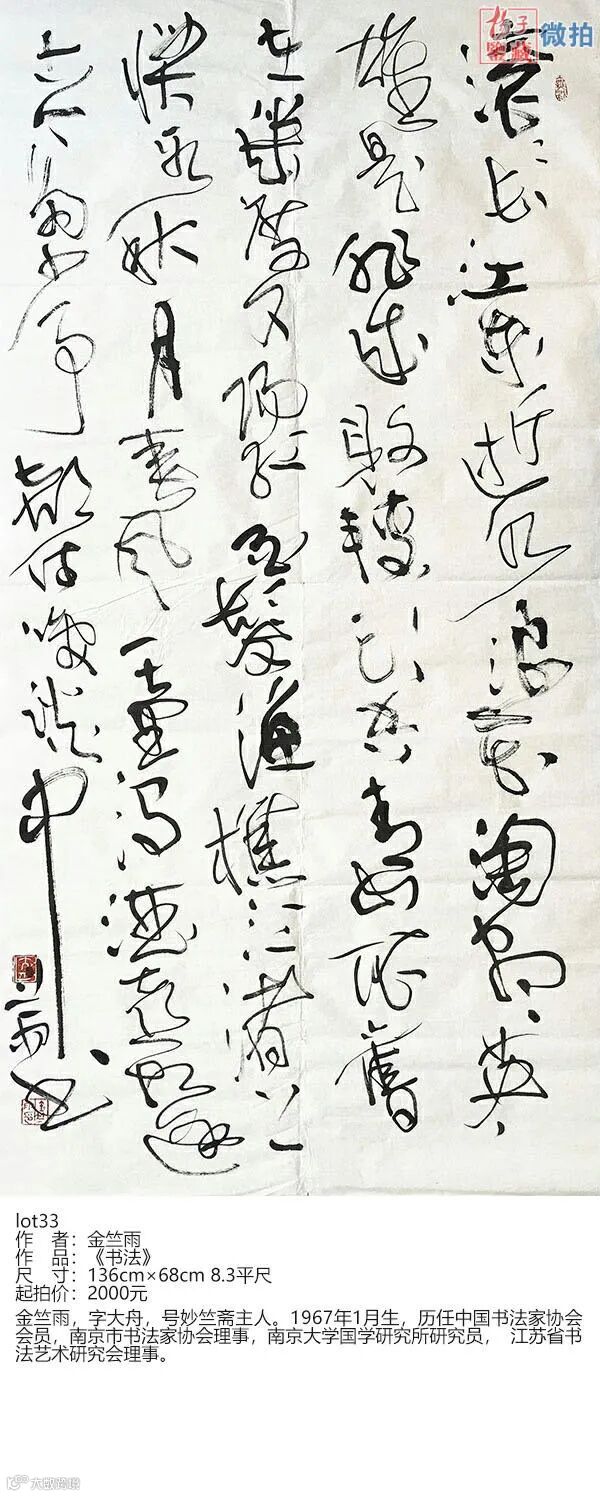 扬子
鉴藏 微拍
滚滚長江東逝水浪花淘盡英
雄是非成敗轉頭空青山依舊
在幾度夕陽紅白髮漁樵江渚上
慣看秋月春風一壺濁酒喜相逢
古今多少事都付笑談中
lot33
作 者：金竺雨
作 品：《书法》
尺 寸：136cm×68cm 8.3平尺
起拍价：2000元
金竺雨，字大舟，号妙竺斋主人。1967年1月生，历任中国书法家协会
会员，南京市书法家协会理事，南京大学国学研究所研究员， 江苏省书
法艺术研究会理事。
大数跨境